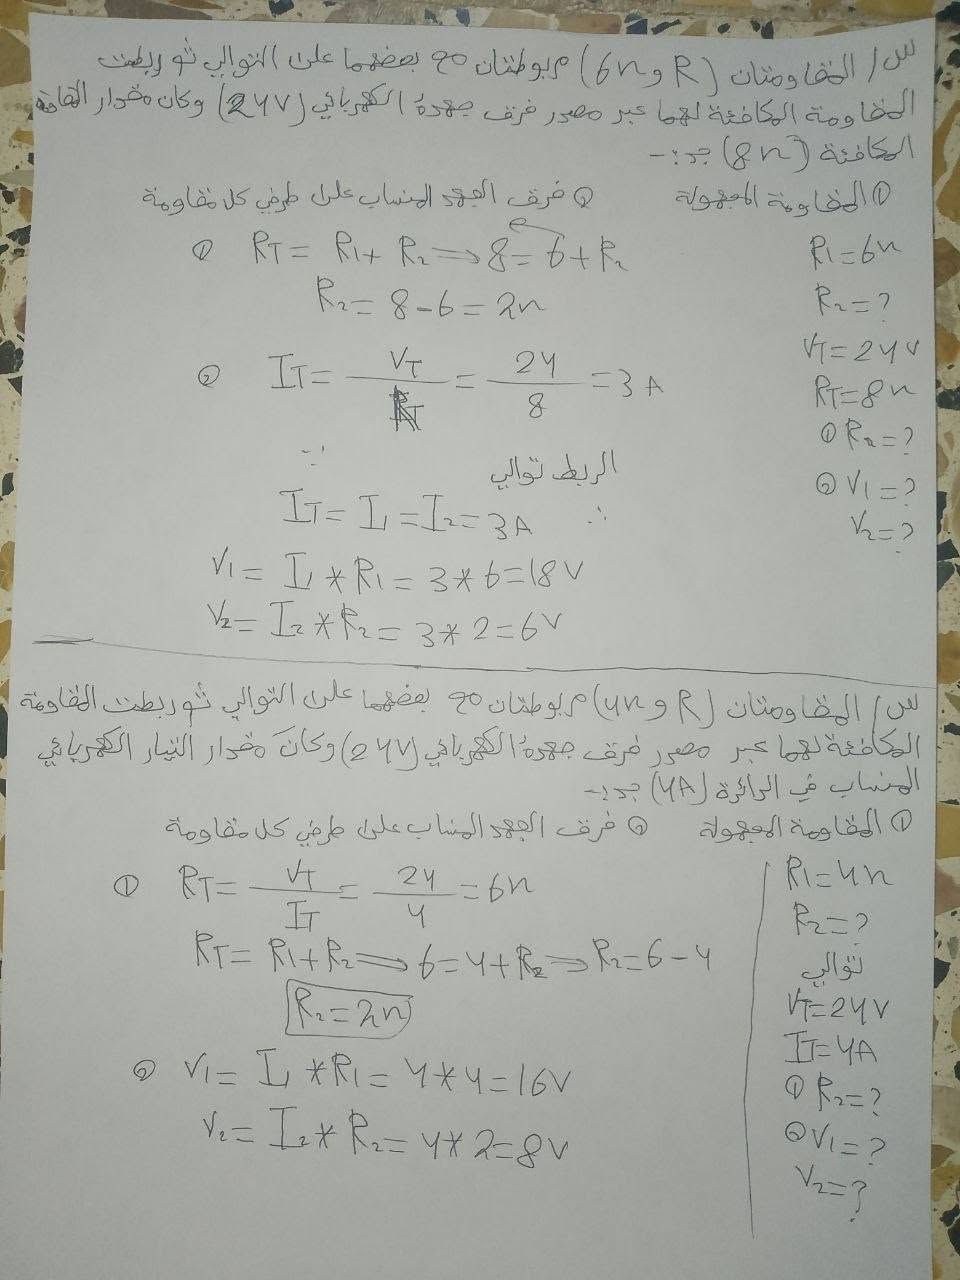 س/ المقاومتان (R و 6Ω) مربوطتان مع بعضهما على التوالي ثم ربطت
المقاومة المكافئة لهما عبر مصدر فرق جهدهُ الكهربائي (24V) وكان مقدار المقاومة
المكافئة (8Ω) جد :-
① المقاومة المجهولة ② فرق الجهد المنساب على طرفي كل مقاومة
R1=6Ω
R2=?
VT=24V
RT=8Ω
① R2=?
② V1=?
V2=?
① RT= R1+ R2 ⟹ 8=6+R2
R2= 8-6=2Ω
② IT= VT/RT = 24/8 =3A
∵ الربط توالي
∴ IT= I1 =I2=3A
V1= I1 * R1= 3*6=18V
V2= I2 * R2= 3*2=6V
س/ المقاومتان (R و 4Ω) مربوطتان مع بعضهما على التوالي ثم ربطت المقاومة
المكافئة لهما عبر مصدر فرق جهدهُ الكهربائي (24V) وكانَ مقدار التيار الكهربائي
المنساب في الدائرة (4A) جد :-
① المقاومة المجهولة ② فرق الجهد المنساب على طرفي كل مقاومة
R1=4Ω
R2=?
توالي
VT=24V
IT=4A
① R2=?
② V1=?
V2=?
① RT= VT/IT = 24/4 =6Ω
RT= R1+R2 ⟹ 6=4+R2 ⟹ R2=6-4
R2=2Ω
② V1= I1 *R1= 4*4=16V
V2= I2* R2= 4*2=8V